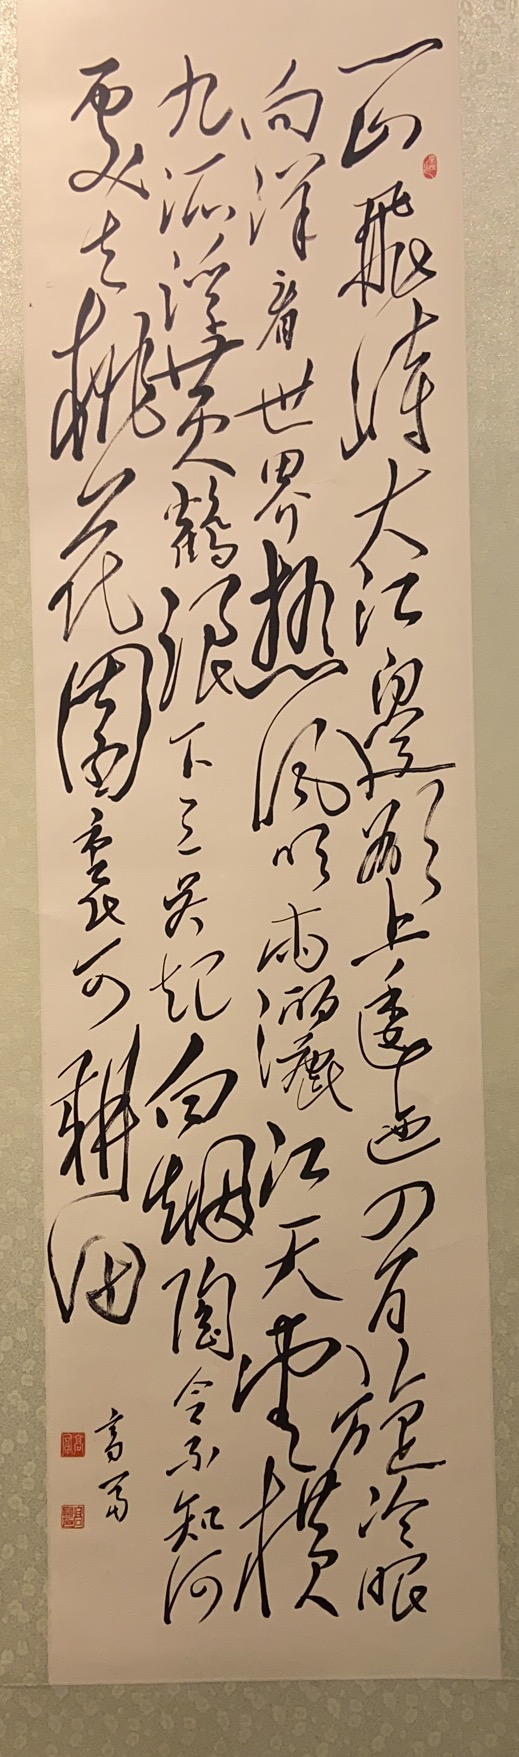 一山飛峙大江邊欲上逶迤四百旋冷眼
向洋看世界熱風吹雨灑江天雲橫
九派浮黄鶴浪下三吴起白烟陶令不知何
處去桃花園裏可耕田
高